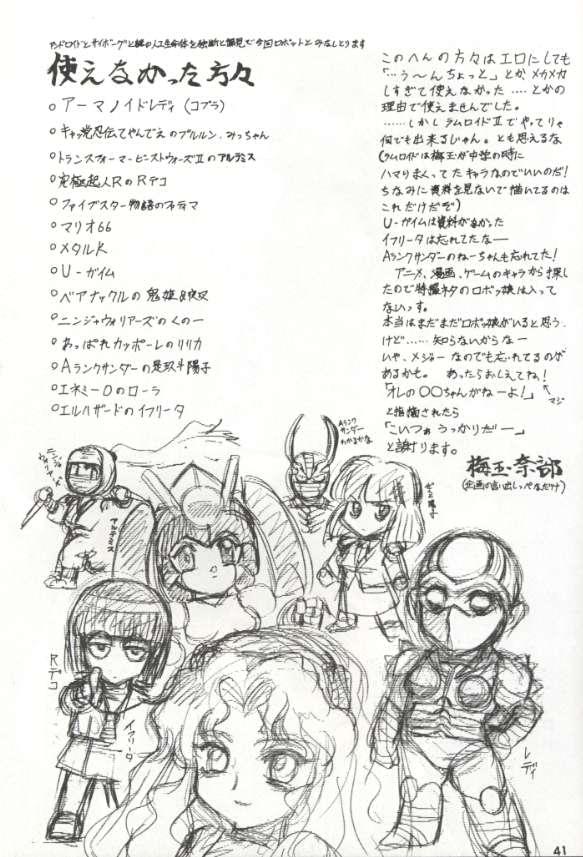 アンドロイドとサイボーグと謎の人工生命体を独断と偏見で今回ロボットとみなしとります
使えなかった方々
○アーマノイドレディ（コブラ）
○キャッ党忍伝てやんでえのプルルン、みっちゃん
○トランスフォーマービーストウォーズⅡのアルテミス
○究極超人RのRデコ
○ファイブスター物語のネティマ
○マリオ66
○メタルK
○U-ガイム
○ベアナックルの鬼姫&夜叉
○ニンジャウォリアーズのくの一
○あっぱれカッポーレのリリカ
○Aランクサンダーの是玖斗陽子
○エネミー0のローラ
○エルハザードのイフリータ
このへんの方々はエロにしても
「…う～んちょっと」とか メカメカ
しすぎて使えなかった‥‥とかの
理由で使えませんでした。
……しかしラムロイドⅡでやってりゃ
何でも出来るじゃん。とも思えるな
(ラムロイドは梅玉が中学の時に
ハマりまくってたキャラなのでいいのだ!
ちなみに資料を見ないで描いてるのは
これだけだぞ)
U-ガイムは資料がなかった
イフリータは忘れてたなー
Aランクサンダーのねーちゃんも忘れてた!
アニメ、漫画、ゲームのキャラから探し
たので特撮ネタのロボッ娘は入って
ないっす。
本当はまだまだロボッ娘がいると思う
けど……知らないからなー
いや、メジャーなのでも忘れてるのが
あるかも。 あったらおしえてね!
「オレの〇〇ちゃんがねーよ!」
マジ
と指摘されたら
「こいつぁうっかりだー」
と謝ります。
梅玉奈部
(企画の言い出しっぺなだけ)
Aランク
サンダー
わかるかな
アルテミス
Rデコ
イフリータ
レディ
41